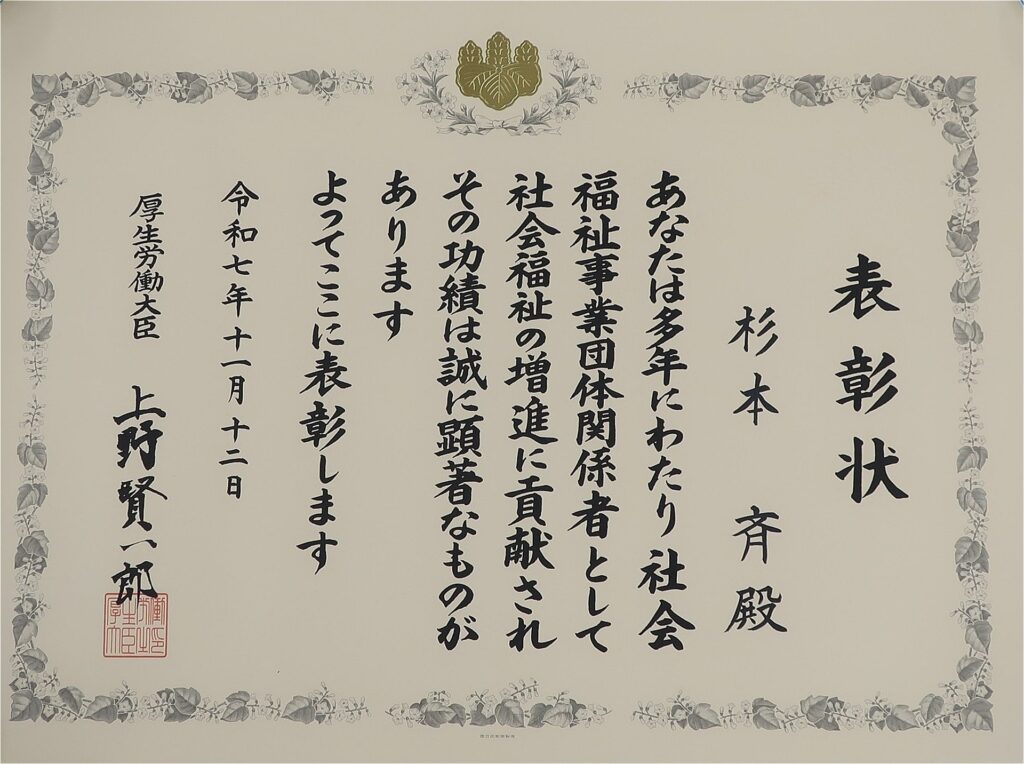 表彰状
杉本 斉 殿
あなたは多年にわたり社会
福祉事業団体関係者として
社会福祉の増進に貢献され
その功績は誠に顕著なものが
あります
よってここに表彰します
令和七年十一月十二日
厚生労働大臣 上野賢一郎